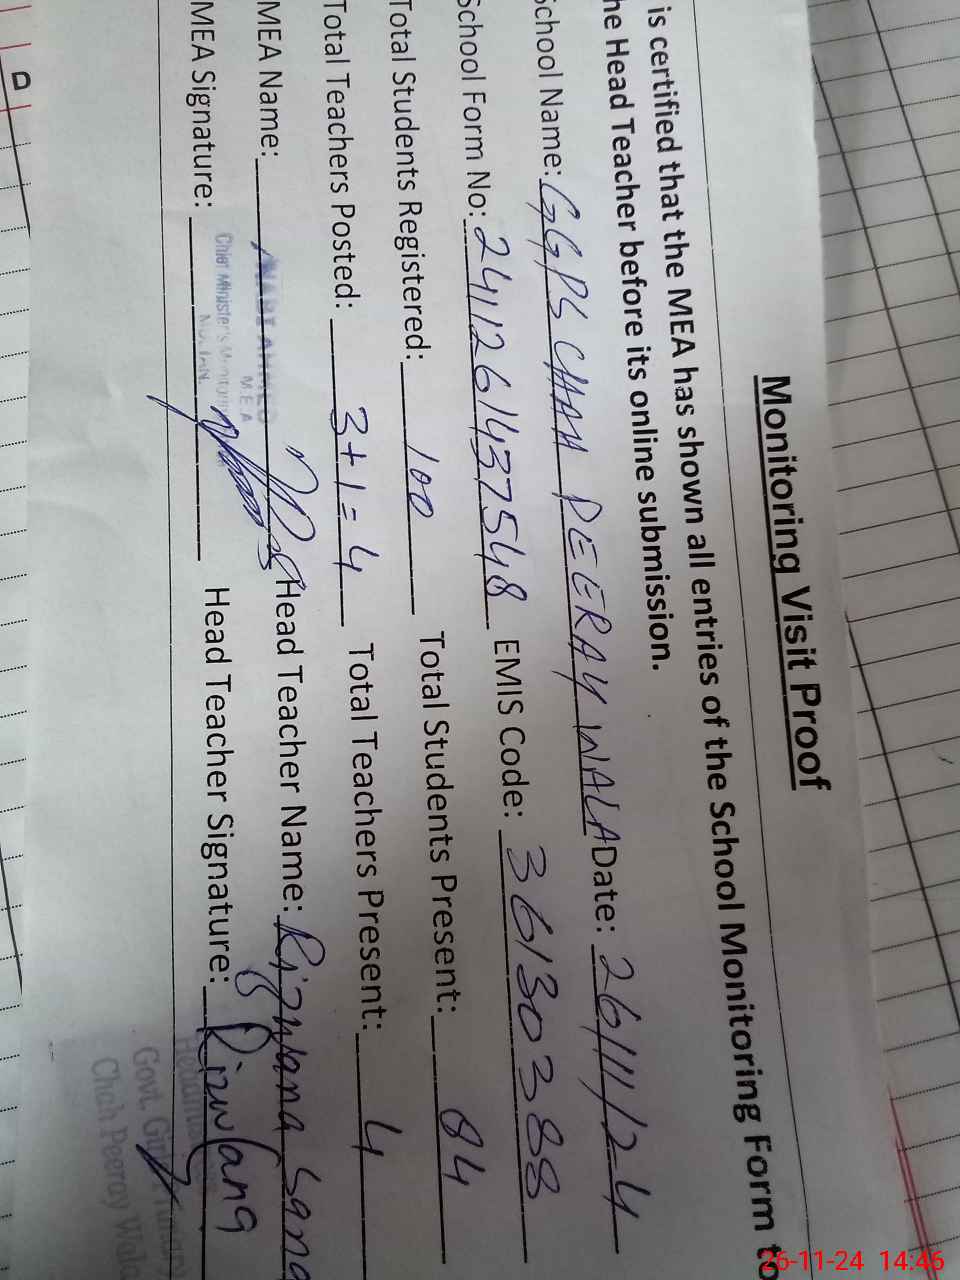 Monitoring Visit Proof
is certified that the MEA has shown all entries of the School Monitoring Form to
he Head Teacher before its online submission.
School Name: GGPS CHAH PEERAY WALA Date: 26/11/24
School Form No: 2411261437548 EMIS Code: 36130388
Total Students Registered: 100 Total Students Present: 84
Total Teachers Posted: 3+1=4 Total Teachers Present: 4
MEA Name: Head Teacher Name: Rizwana Sana
M.E.A
MEA Signature: Head Teacher Signature: Rizwana
Chief Minister's
Govt. Girls Primary
Chah Peeray Wala
26-11-24 14:46